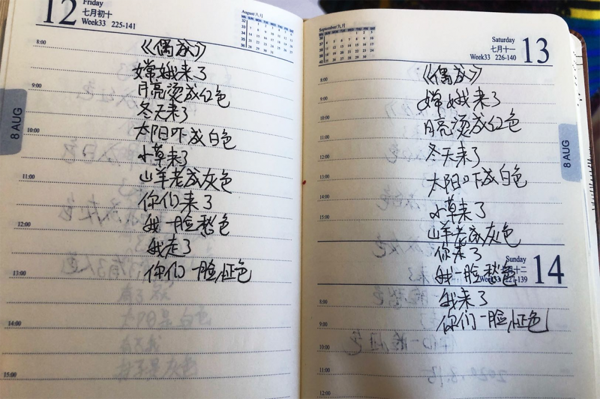 12
Friday
七月初十
Week33 225-141
8 AUG
8:00
9:00
10:00
11:00
12:00
13:00
14:00
15:00
《偶成》
嫦娥来了
月亮烫成红色
冬天来了
太阳吓成白色
小草来了
山羊老成灰色
你们来了
我一脸愁色
我走了
你们一脸怔色
Saturday
13
七月十一
Week33 226-140
8 AUG
8:00
9:00
10:00
11:00
12:00
13:00
14:00
15:00
《偶成》
嫦娥来了
月亮烫成红色
冬天来了
太阳吓成白色
小草来了
山羊老成灰色
你来了
我一脸愁色
我来了
你们一脸怔色
Sunday
14
8:00
9:00
10:00
11:00